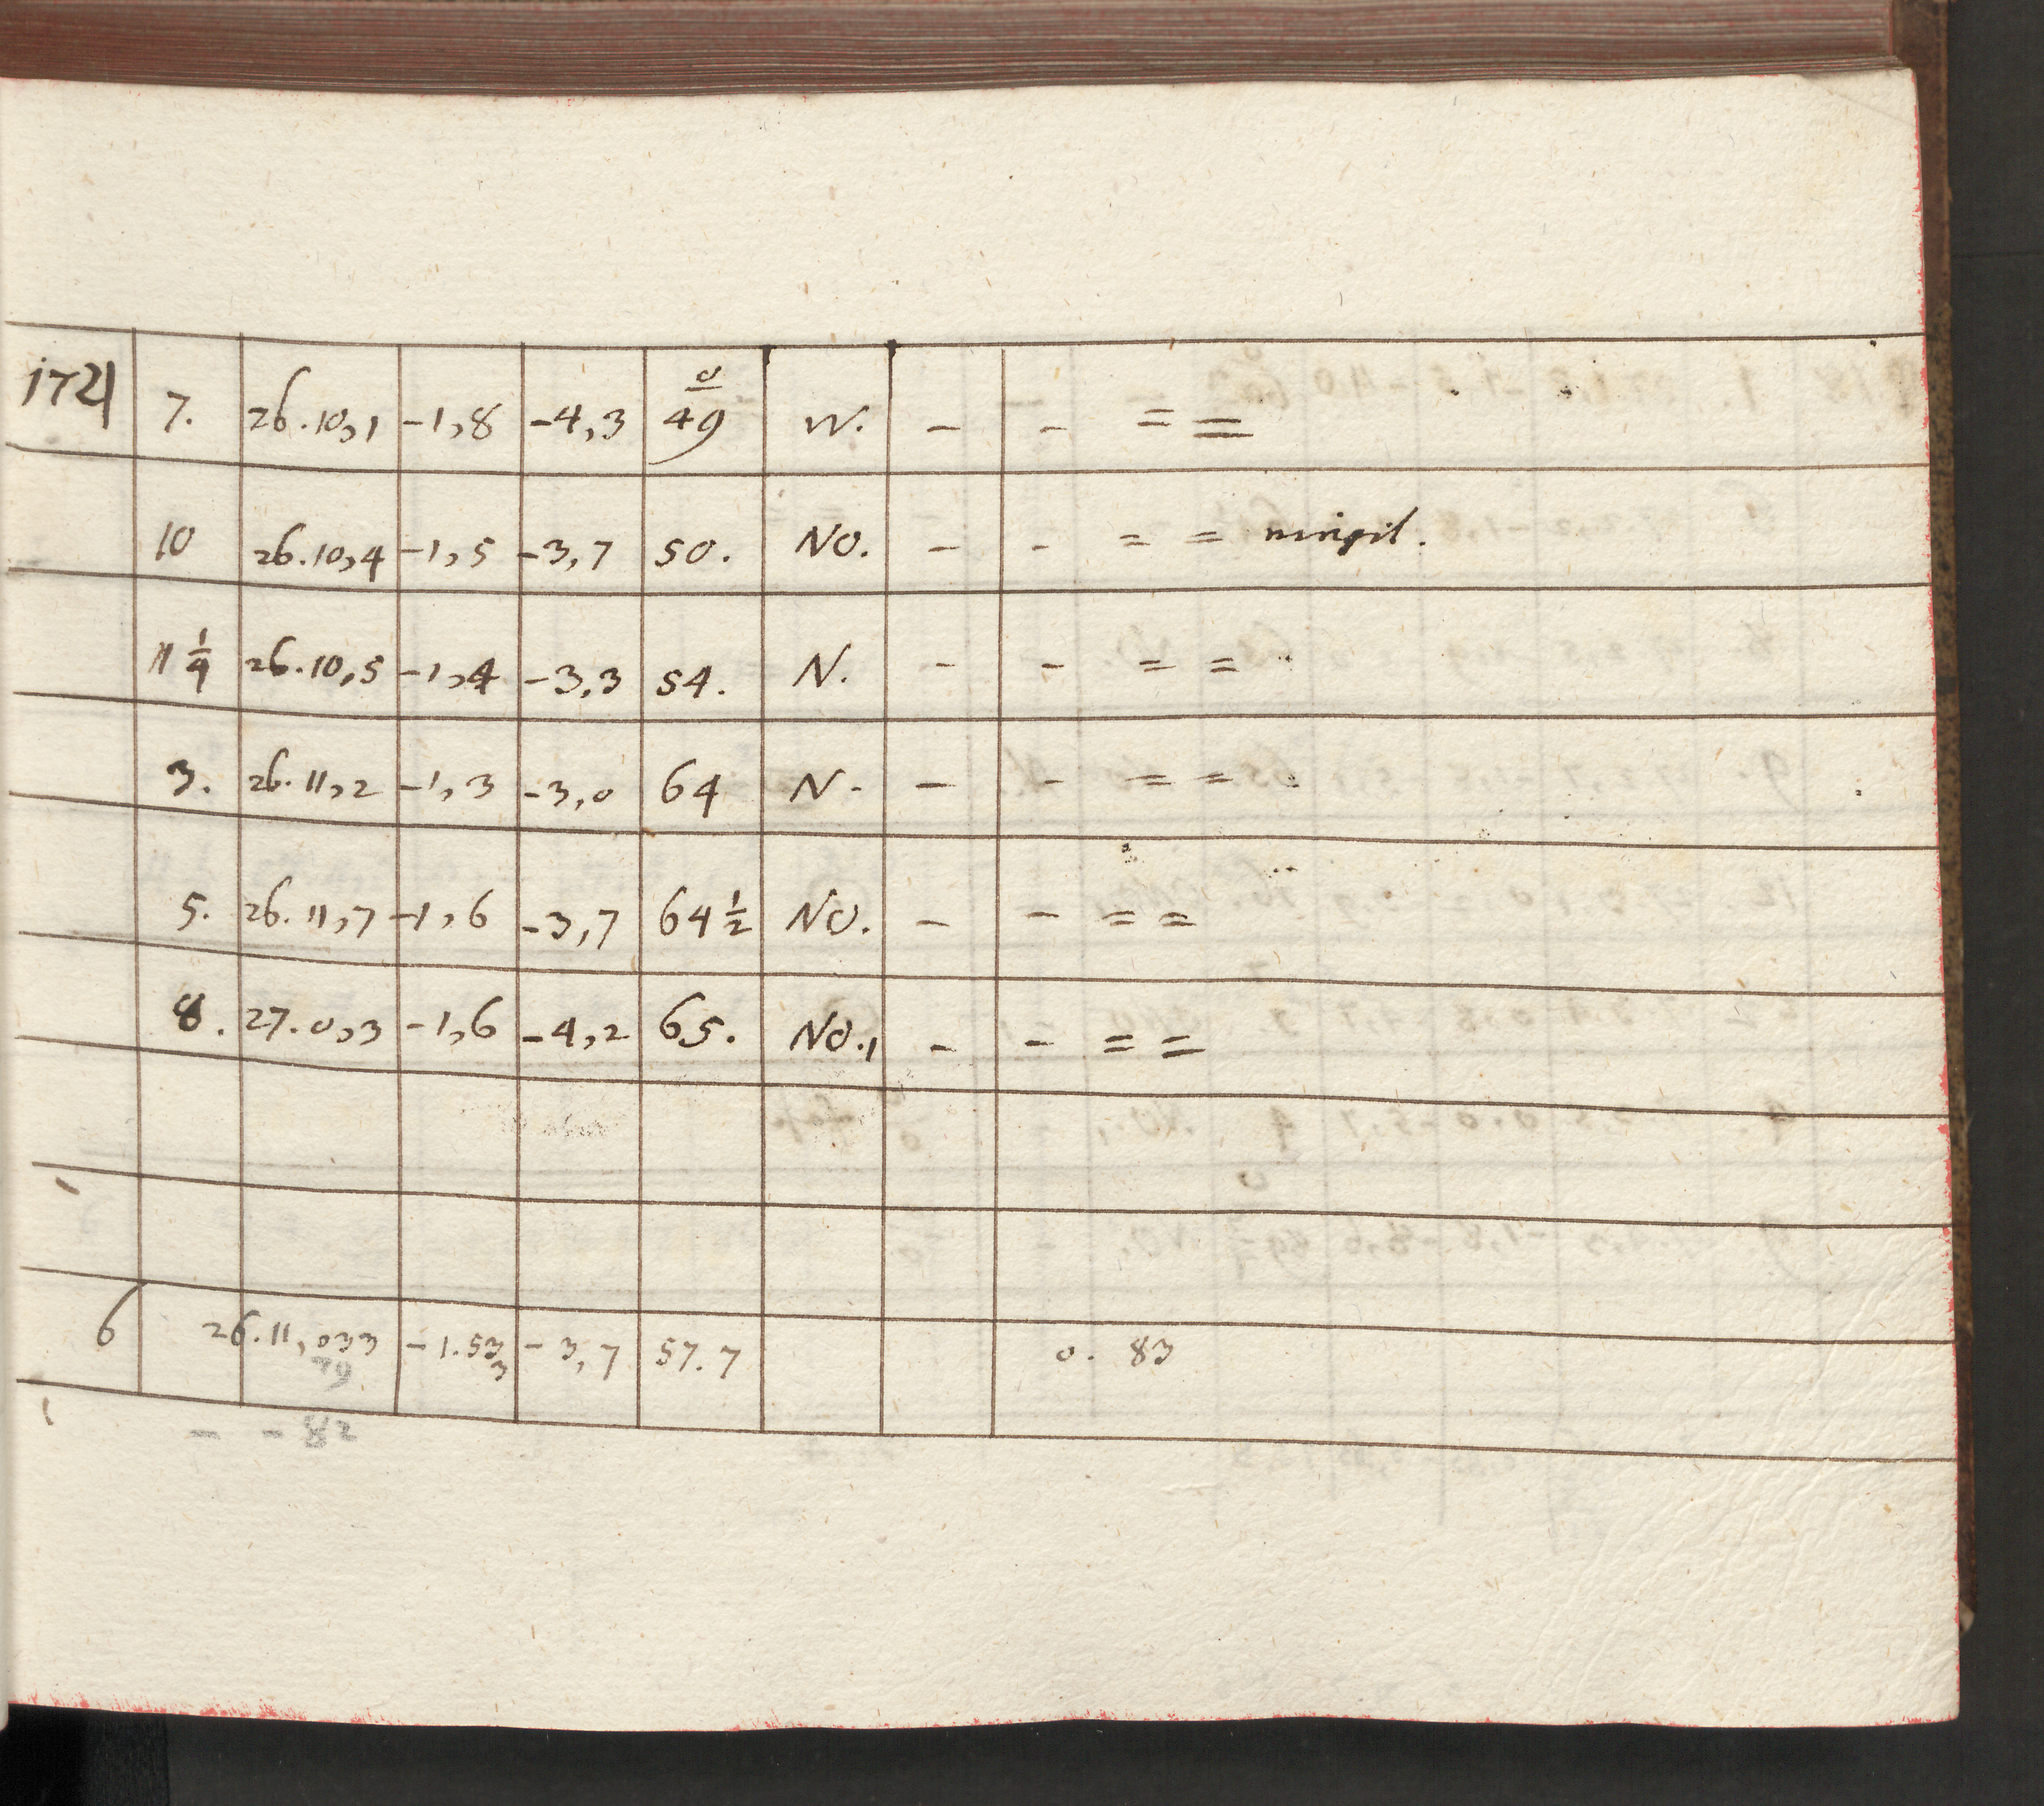 1721 7. 26.10,1 -1,8 -4,3 0/49 W. - - = =
10 26.10,4 -1,5 -3,7 50. NO. - - = = ningit.
11 1/4 26.10,5 -1,4 -3,3 54. N. - - = =
3. 26.11,2 -1,3 -3,0 64 N. - - = =
5. 26.11,7 -1,6 -3,7 64 1/2 NO. - - = =
8. 27.0,3 -1,6 -4,2 65. NO.1 - - = =
6 26.11,033 -1.533 -3,7 57.7 0.83
79
- - 82